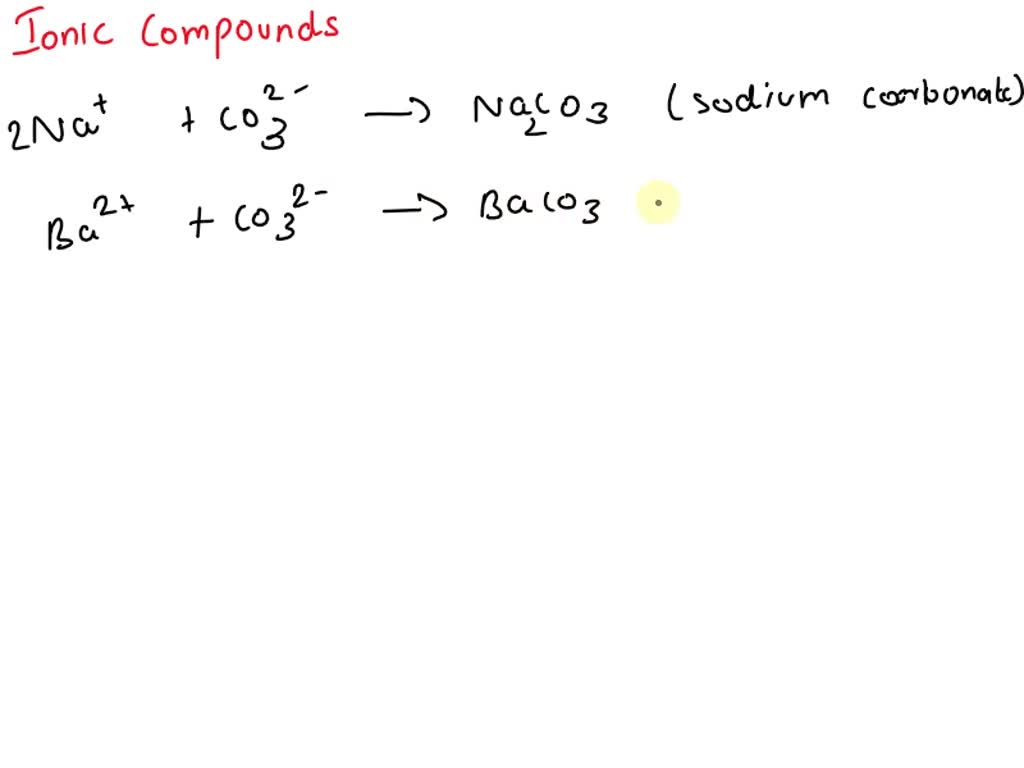 Ionic Compounds
2Na⁺ + CO₃²⁻ → Na₂CO₃ (sodium carbonate)
Ba²⁺ + CO₃²⁻ → BaCO₃